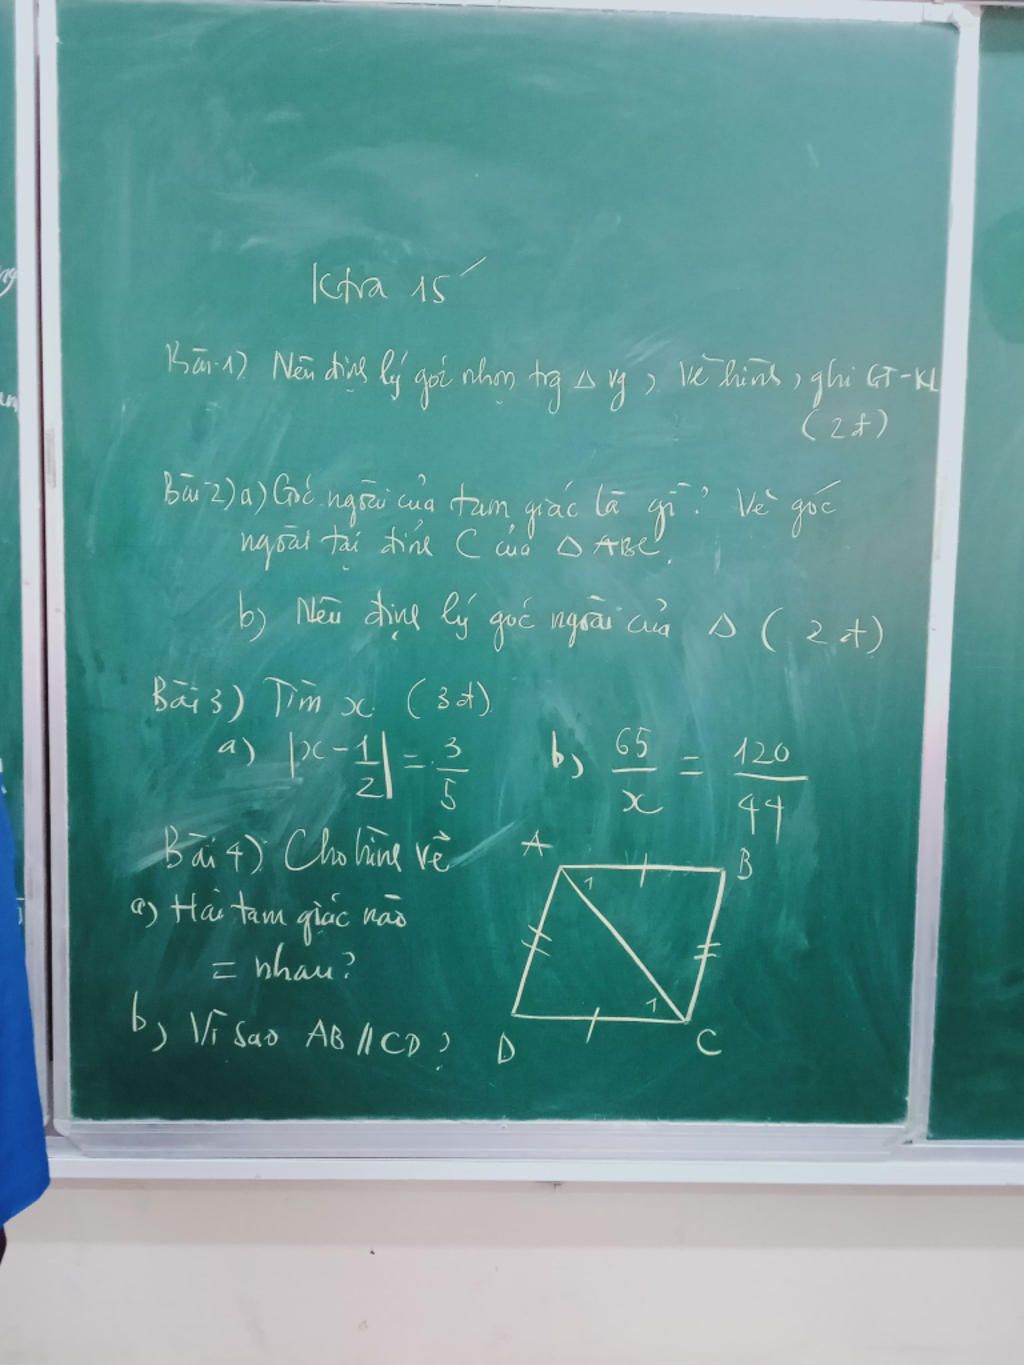 Ktra 15'
Bài 1) Nêu định lý góc nhọn trg Δ vg, vẽ hình, ghi GT-KL
(2đ)
Bài 2) a) Góc ngoài của tam giác là gì? Vẽ góc
ngoài tại đỉnh C của Δ ABC.
b) Nêu định lý góc ngoài của Δ (2đ)
Bài 3) Tìm x (3đ)
a) |x - 1/2| = 3/5 b) 65/x = 120/44
Bài 4) Cho hình vẽ
A B
1
a) Hai tam giác nào
= nhau?
1
b) Vì sao AB // CD?
D C